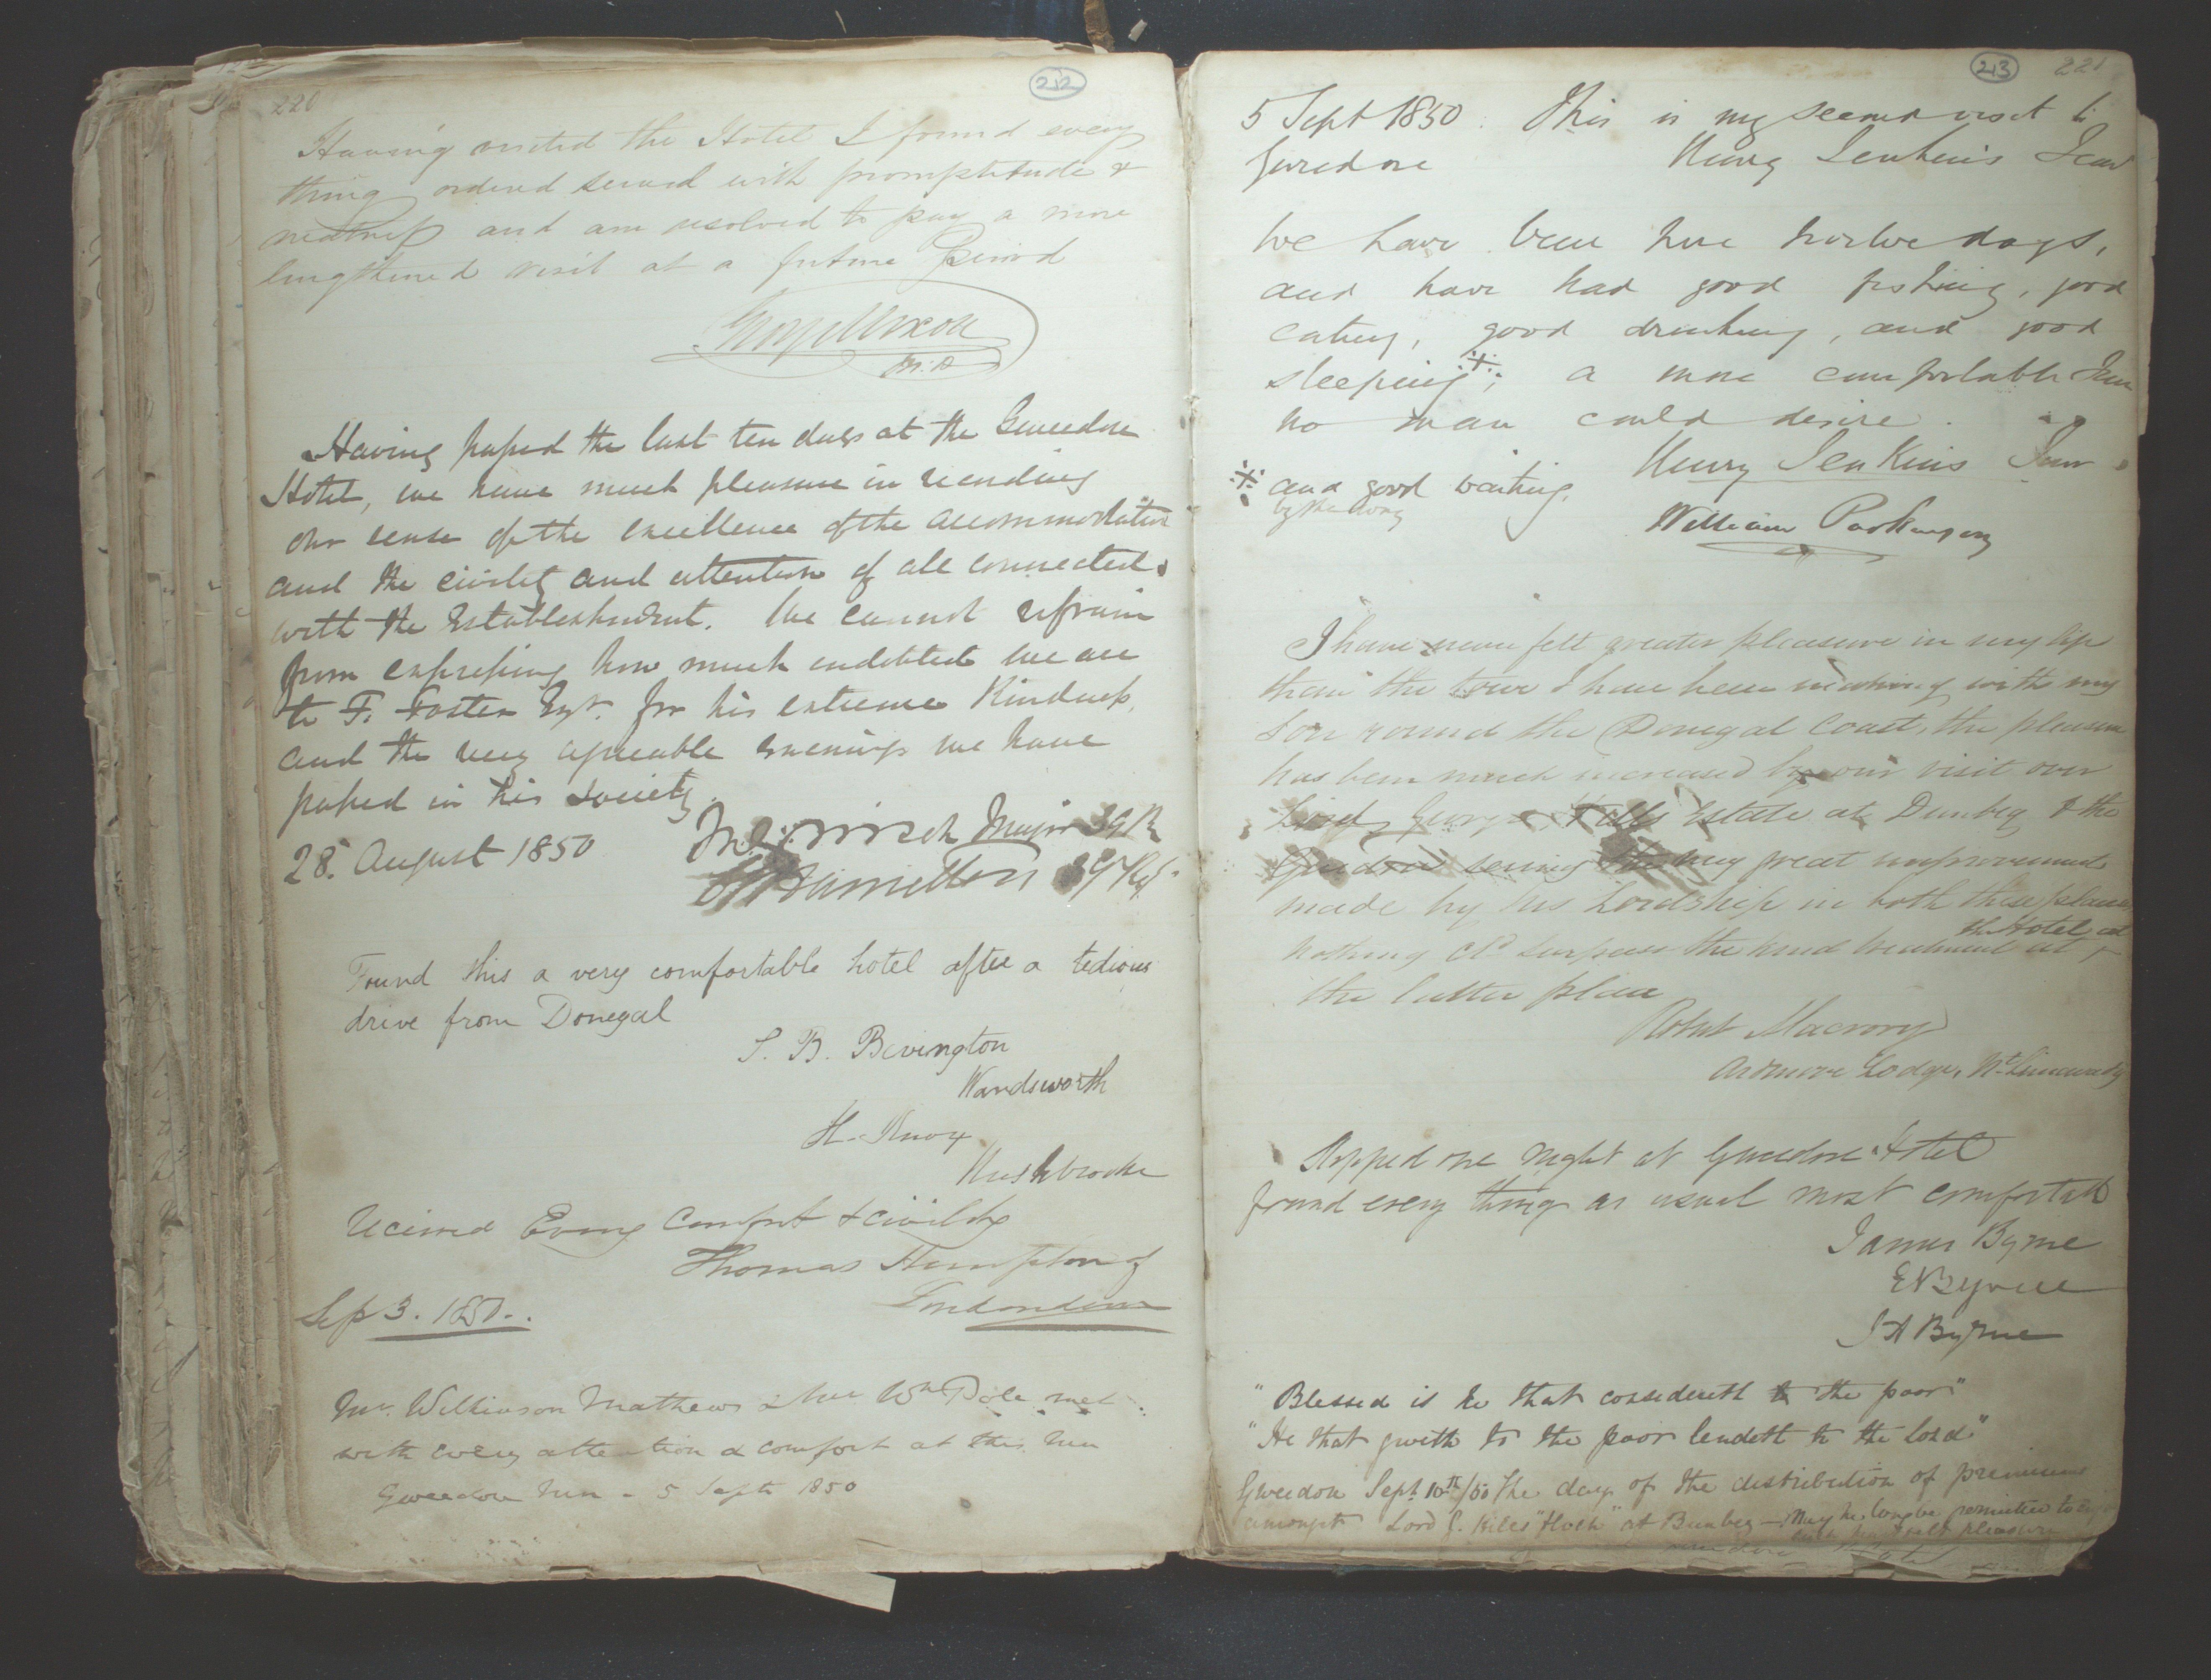 220
212
Having visited the Hotel I found every
thing ordered served with promptitude &
neatness and am resolved to pay a more
lengthened visit at a future Period
M.D
Having passed the last ten days at the Gweedore
Hotel, we have much pleasure in recording
our sense of the excellence of the accommodation
and the civility and attention of all connected
with the Establishment. We cannot refrain
from expressing how much indebted we are
to F. Foster Esqr. for his extreme Kindness,
and the very agreeable evenings we have
passed in his society.
28. August 1850
Major 39 R
Hamilton 39 Regt
Found this a very comfortable hotel after a tedious
drive from Donegal
S. B. Bevington
Wandsworth
H. Knox
Rushbrooke
Received Every Comfort & civility
Thomas
Londonderry
Sep 3. 1850.
Mr. Wilkinson Mathews & Mr Wm Pole met
with every attention & comfort at this Inn
Gweedore Inn - 5 Septr 1850
213
221
5 Sept 1850. This is my second visit to
Gweedore Henry Jenkins Junr
We have been here twelve days,
and have had good fishing, good
eating, good drinking, and good
sleeping; a more comfortable Inn
no man could desire.
Henry Jenkins Junr
and good waiting,
by the way
William
I have never felt greater pleasure in my life
than the tour I have been making with my
Son round the Donegal Coast, the pleasure
has been much increased by our visit over
Lord George Hills Estate at Bunbeg & the
Gweedore seeing the very great improvements
made by his Lordship in both these places,
the Hotel at
nothing cd. surpass the kind treatment at
the latter place
Robert Macrory
Ardmore Lodge, Nt. Limavady
Stopped one night at Gweedore Hotel
found every thing as usual most comfortable
James Byrne
E Byrne
J A Byrne
"Blessed is he that considereth the poor"
"He that giveth to the poor lendeth to the Lord"
Gweedore Sept. 10th/50 The day of the distribution of premiums
amongst Lord G. Hills "flock" at Bunbeg - May he long be permitted to enjoy
pleasure